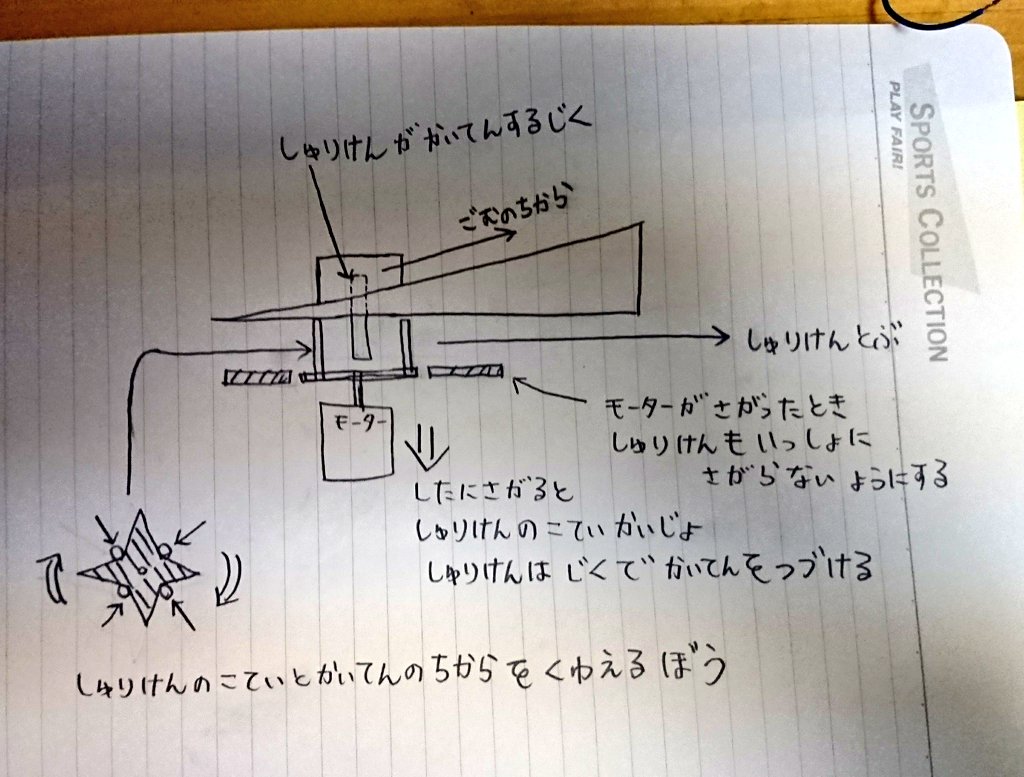 SPORTS COLLECTION
PLAY FAIR!
しゅりけんがかいてんするじく
ごむのちから
しゅりけんとぶ
モーターがさがったとき
しゅりけんもいっしょに
さがらないようにする
モーター
したにさがると
しゅりけんのこていかいじょ
しゅりけんはじくでかいてんをつづける
しゅりけんのこていとかいてんのちからをくわえるぼう